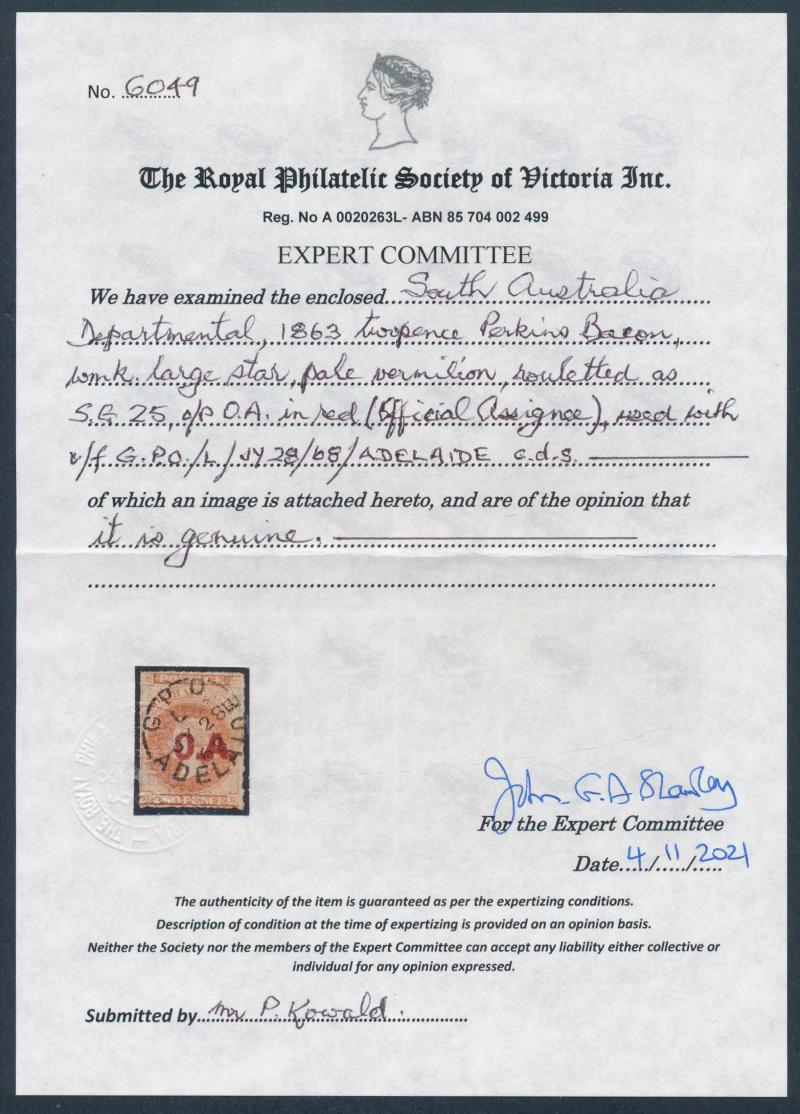 No. 6049
The Royal Philatelic Society of Victoria Inc.
Reg. No A 0020263L- ABN 85 704 002 499
EXPERT COMMITTEE
We have examined the enclosed South Australia
Departmental, 1863 twopence Perkins Bacon,
wmk. large star, pale vermilion, rouletted as
S.G 25, o/p O.A. in red (Official Assignee), used with
v/f G.P.O/L/JY28/68/ADELAIDE c.d.s.
of which an image is attached hereto, and are of the opinion that
it is genuine.
G P O
L
28
O.A
ADELAI
TWO PENCE
THE ROYAL PHIL
John G.A
For the Expert Committee
Date 4/11/2021
The authenticity of the item is guaranteed as per the expertizing conditions.
Description of condition at the time of expertizing is provided on an opinion basis.
Neither the Society nor the members of the Expert Committee can accept any liability either collective or
individual for any opinion expressed.
Submitted by Mr P. Kowald.